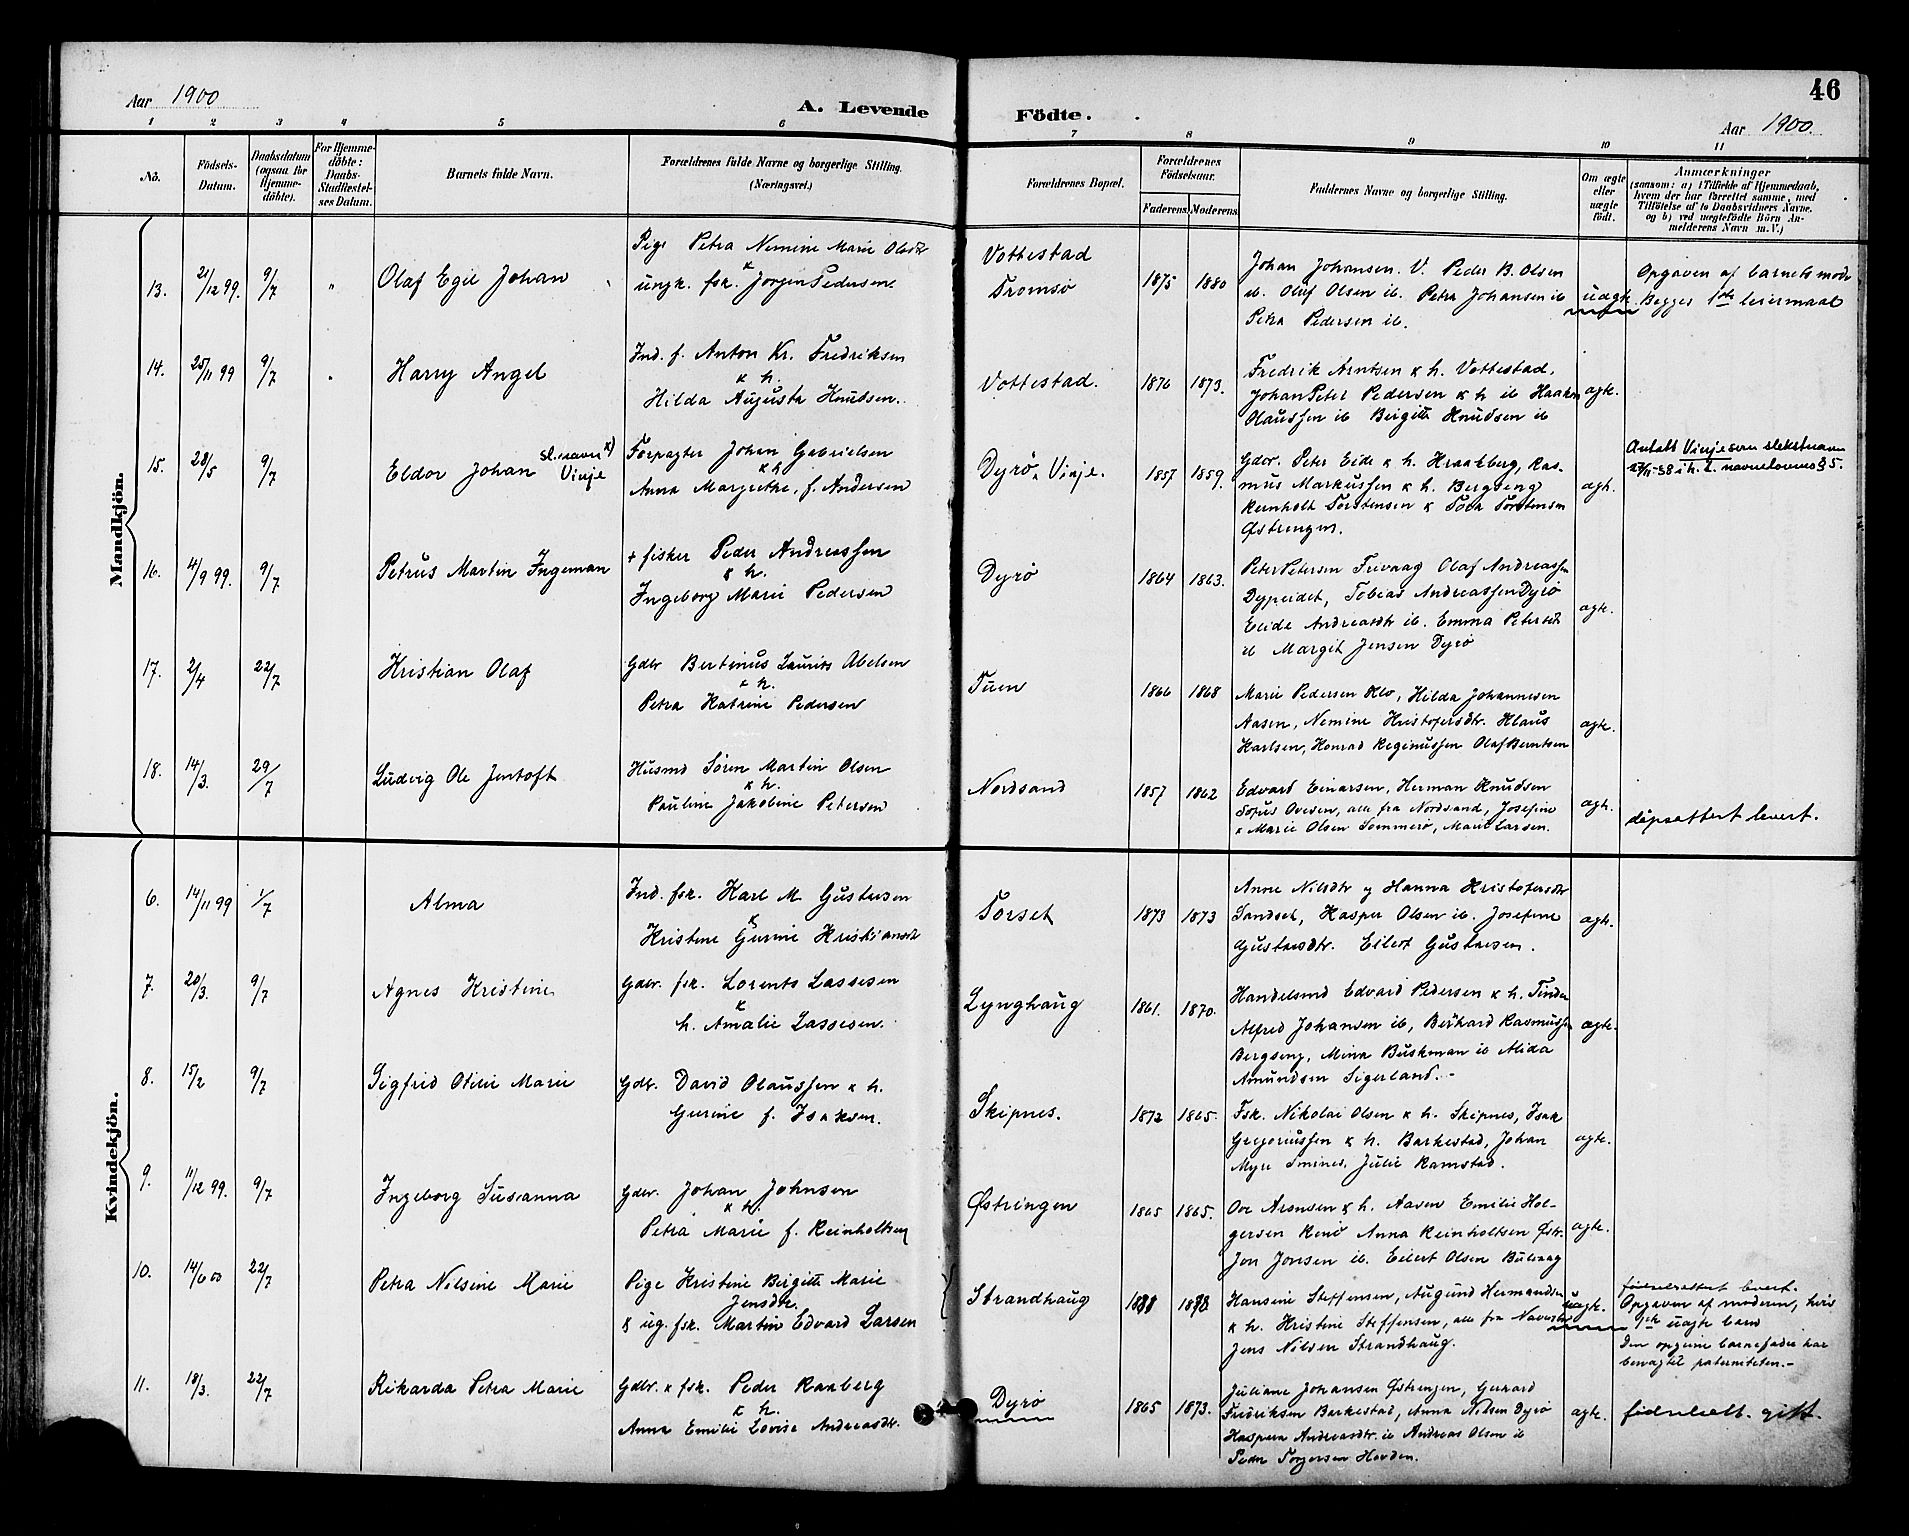 Aar 1900
A. Levende
Födte.
46
Aar 1900.
1 2 3 4 5 6 7 8 9 10 11
No.
Födsels-
Datum.
Daabsdatum
(ogsaa for
Hjemme-
döbte).
For Hjemme-
döbte:
Daabs-
Stadfæstel-
ses Datum.
Barnets fulde Navn.
Forældrenes fulde Navne og borgerlige Stilling.
(Næringsvei.)
Forældrenes Bopæl.
Forældrenes
Födselsaar.
Faderens Moderens
Faddernes Navne og borgerlige Stilling.
Om ægte
eller
uægte
födt.
Anmærkninger
(saasom: a) i Tilfælde af Hjemmedaab,
hvem der har forrettet samme, med
Tilföielse af to Daabsvidners Navne,
og b) ved uægtefödte Börn An-
melderens Navn m.V.)
Mandkjön.
13. 21/12 99. 9/7 " Olaf Egil Johan
Pige Petra Nemine Marie Olsdtr
&
ungk. fsk. Jørgen Pedersen.
Vottestad
Tromsø
1875 1880
Johan Johansen. V. Peder B. Olsen
ib. Oluf Olsen ib. Petra Johansen ib
Petra Pedersen ib.
uægte
Opgaven af barnets mode
Begges 1ste leiermaal
14. 25/11 99 9/7 " Harry Angel
Ind. f. Anton Kr. Fredriksen
& h.
Hilda Augusta Knudsen.
Vottestad.
1876 1873.
Fredrik Arntsen & h. Vottestad,
Johan Peter Pedersen & h ib Haakon
Olaussen ib Birgitte Knudsen ib
ægte.
15. 28/5 9/7 Eldor Johan sl.navn x) Vinje
Forpagter Johan Gabrielsen
& h
Anna Margrethe, f. Andersen
Dyrø, Vinje.
1857 1859.
Gdbr. Peter Eide & h. Kraakberg, Ras-
mus Markussen & h. Bergseng
Reinholt Torstensen & Tora Torstensen
Østrengen.
ægte.
Antatt Vinje som slektsnavn
23/11-38 i h. t. navnelovens § 5.
16. 4/9 99. 9/7 Petrus Martin Ingeman
+ fisker Peder Andreassen
& h.
Ingeborg Marie Pedersen
Dyrø
1864 1863.
Peter Petersen Olaf Andreassen
Dypeidet, Tobias Andreassen Dyrø
Elide Andreasdtr ib. Emma Petersdt
ib Margit Jensen Dyrø
ægte.
17. 2/4 22/7 Kristian Olaf
Gdbr Bertinus Laurits Abelsen
& h.
Petra Katrine Pedersen
Tuen
1866 1868
Marie Pedersen Klo, Hilda Johannesen
Aasen, Nemine Kristofersdtr. Klaus
Karlsen, Konrad Reginussen Olaf Berntsen
ægte.
18. 14/3. 29/7 Ludvig Ole Jentoft
Husmd Søren Martin Olsen
& h.
Pauline Jakobine Petersen
Nordsand
1857 1862
Edvard Einarsen, Herman Knudsen
Sofus Ovesen, alle fra Nordsand, Josefine
& Marie Olsen Sommerø, Marie Larsen.
ægte.
dåpsattest levert.
Kvindekjön.
6. 14/11 99 1/7 Alma
Ind. fsk. Karl M. Gustavsen
&
Kristine Gurine Kristiansdtr
Torset
1873 1873
Anne Nilsdtr og Hanna Kristofersdtr
Sandset, Kasper Olsen ib. Josefine
Gustavsdtr. Eilert Gustavsen.
ægte.
7. 20/3. 9/7 Agnes Kristine
Gdbr. fsk. Lorents Lassesen
&
h. Amalie Lassesen.
Lynghaug
1861. 1870.
Handelsmd Edvard Pedersen & h. Tinden
Alfred Johansen ib, Berhard Rasmussen
Bergseng, Mina Buskman ib Alida
Amundsen Sigerland.-
ægte.
8. 15/2 9/7 Sigfrid Otilie Marie
Gdbr. David Olaussen & h.
Gurine f. Isaksen.
Skipnes.
1872 1865.
Fsk. Nikolai Olsen & h. Skipnes, Isak
Gregoriussen & h. Barkestad, Johan
Myre Smines, Julie Ramstad.
ægte.
9. 11/12 99. 9/7 Ingeborg Susanna
Gdbr. Johan Johnsen
& h.
Petra Marie f. Reinholtsen
Østringen
1865 1865.
Ove Aronsen & h. Aasen Emilie Hol-
gersen Renø Anna Reinholtsen Østr.
Jon Jonsen ib. Eilert Olsen Bulvaag
ægte.
10. 14/6 00 22/7 Petra Nilsine Marie
Pige Kristine Birgitte Marie
Jensdtr.
& ug. fsk. Martin Edvard Larsen
Strandhaug
1878
Hansine Steffensen, Augund Hermandsen
& h. Kristine Steffensen, alle fra
Jens Nilsen Strandhaug.
uægte.
fødselsattest levert.
Opgaven af moderen, hvis
1ste uægte barn
Den opgivne barnefader har
benægtet paterniteten.-
11. 18/3. 22/7 Rikarda Petra Marie
Gdbr. & fsk. Peder Raaberg
& h.
Anna Emilie Lovise Andreasdtr.
Dyrø
1865 1873.
Juliane Johansen Østrengen, Gerhard
Fredriksen Barkestad, Anna Nilsen Dyrø
Kaspara Andreasdtr. ib Andreas Olsen ib
Peder Torgersen Hovden.
ægte.
fødselsatt. gitt.